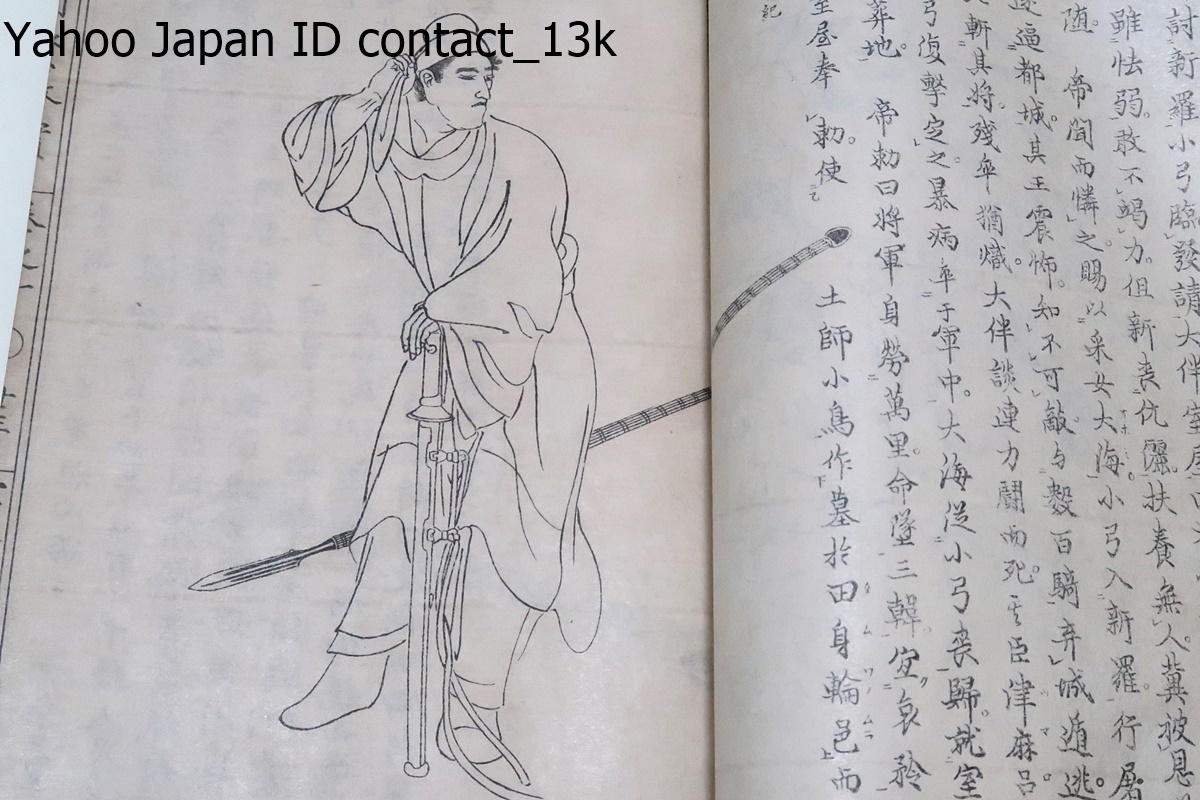 Yahoo Japan ID contact_13k
討新羅小弓臨發請大伴室屋
雖怯弱。敢不竭力。但新喪伉儷。扶養無人。冀被恩
陏。帝聞而憐之。賜以采女大海。小弓入新羅。行屠
逼都城。其王震怖。知不可敵。与數百騎弃城遁逃。
斬其將。殘卒猶熾。大伴談連力鬪而死。其臣津麻呂。
弓復擊定之。暴病卒于軍中。大海從小弓喪歸。就室
葬地。帝勅曰將軍身勞萬里。命墜三韓。宜哀矜
室屋奉勅。使土師小鳥作墓於田身輪邑而
記